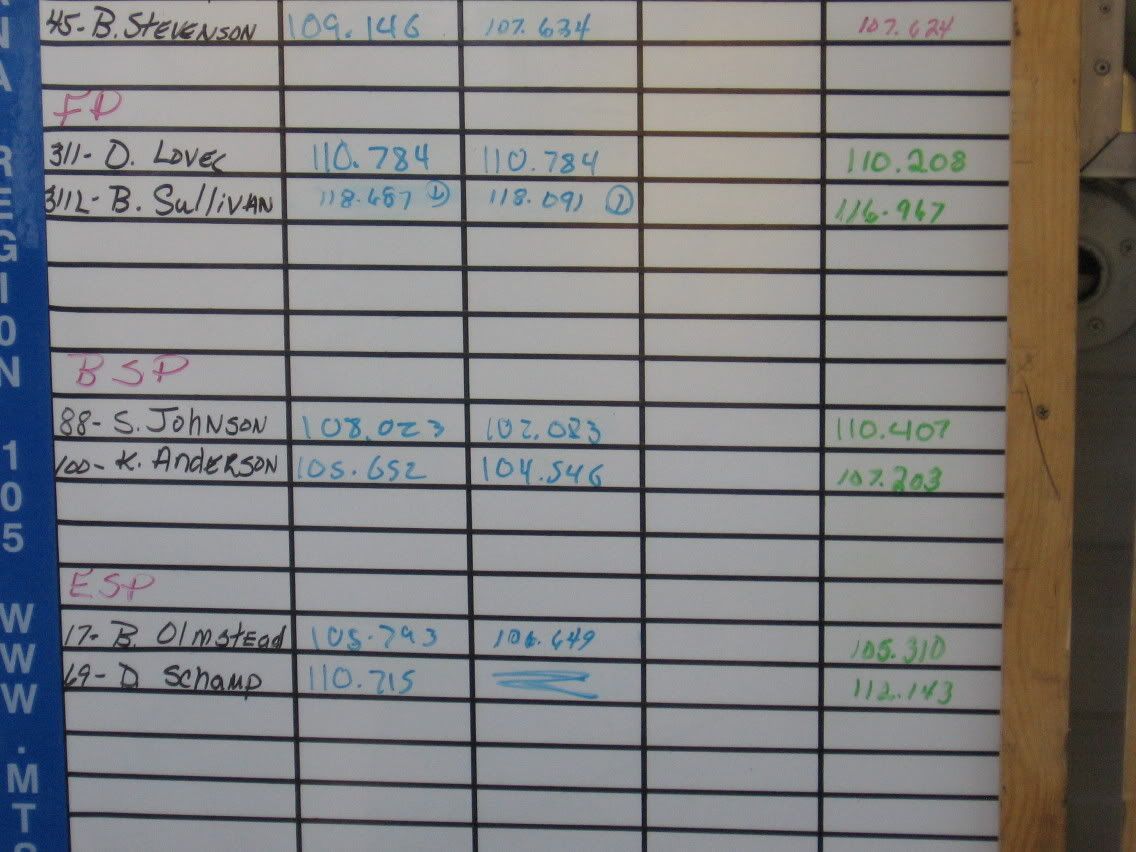 45- B. STEVENSON 109.146 107.634 107.624
FP
311- D. LOVEC 110.784 110.784 110.208
311L- B. SullivAN 118.687 ① 118.091 ① 116.967
BSP
88- S. JOHNSON 108.023 102.083 110.407
100- K. AndERSON 105.652 104.546 107.203
ESP
17- B. OlmstEAd 105.793 106.649 105.310
69- D Schamp 110.715 112.143
REGION 105 WWW.MTS